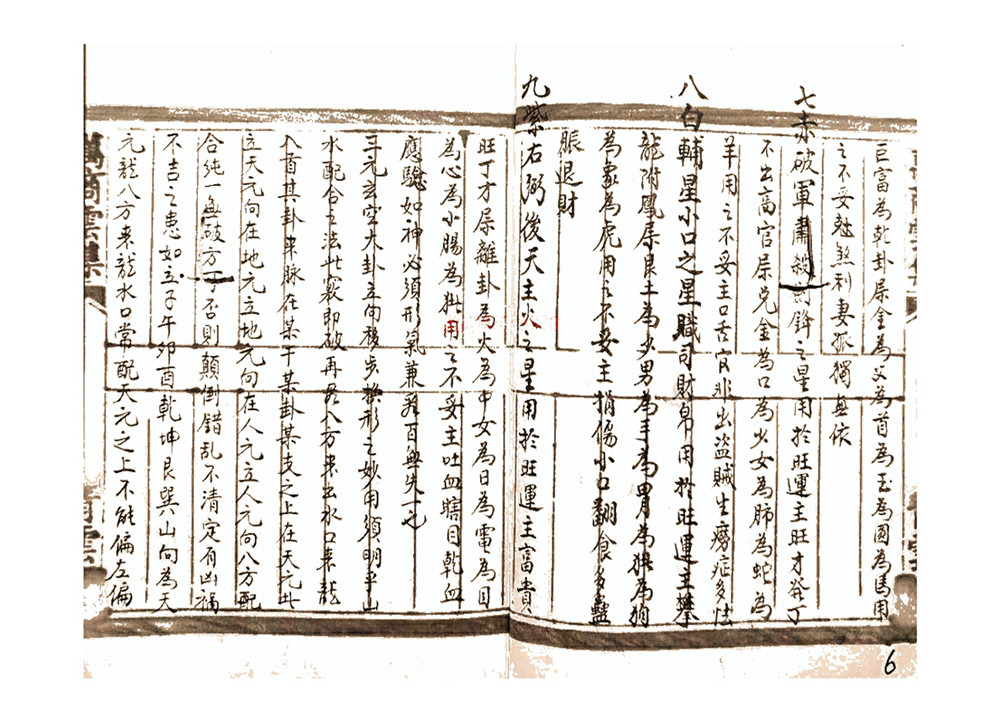 巨富為乾卦屬金為父為首為玉為國為馬用
之不妥尅煞利妻孤獨無依
七赤破軍肅殺劍鋒之星用於旺運主旺才發丁
不出高官屬兌金為口為少女為肺為蛇為
羊用之不妥主口舌官非出盜賊生癆症多怯
八白輔星小口之星職司財帛用於旺運主攀
龍附鳳屬艮土為少男為手為胃為狗
為用之不妥主損傷小口翻食多蠱
脹退財
九紫右弼後天主火之星用於旺運主富貴
旺丁才屬離卦為火為中女為日為電為目
為心為小腸為用之不妥主吐血瞎目乾血
應驗如神必須形氣兼者百無失一也
三元玄空大卦立向移步換形之妙用須明乎山
水配合之法此竅即破再看八方來出水口來龍
入首其卦來脉在某干某卦某支之上在天元此
立天元向在地元立地元向在人元立人元向八方配
合純一無破方可否則顛倒錯乱不清定有凶禍
不吉之患如立子午卯酉乾坤艮巽山向為天
元龍八方來龍水口常配天元之上不能偏左偏
萬商雲集
6